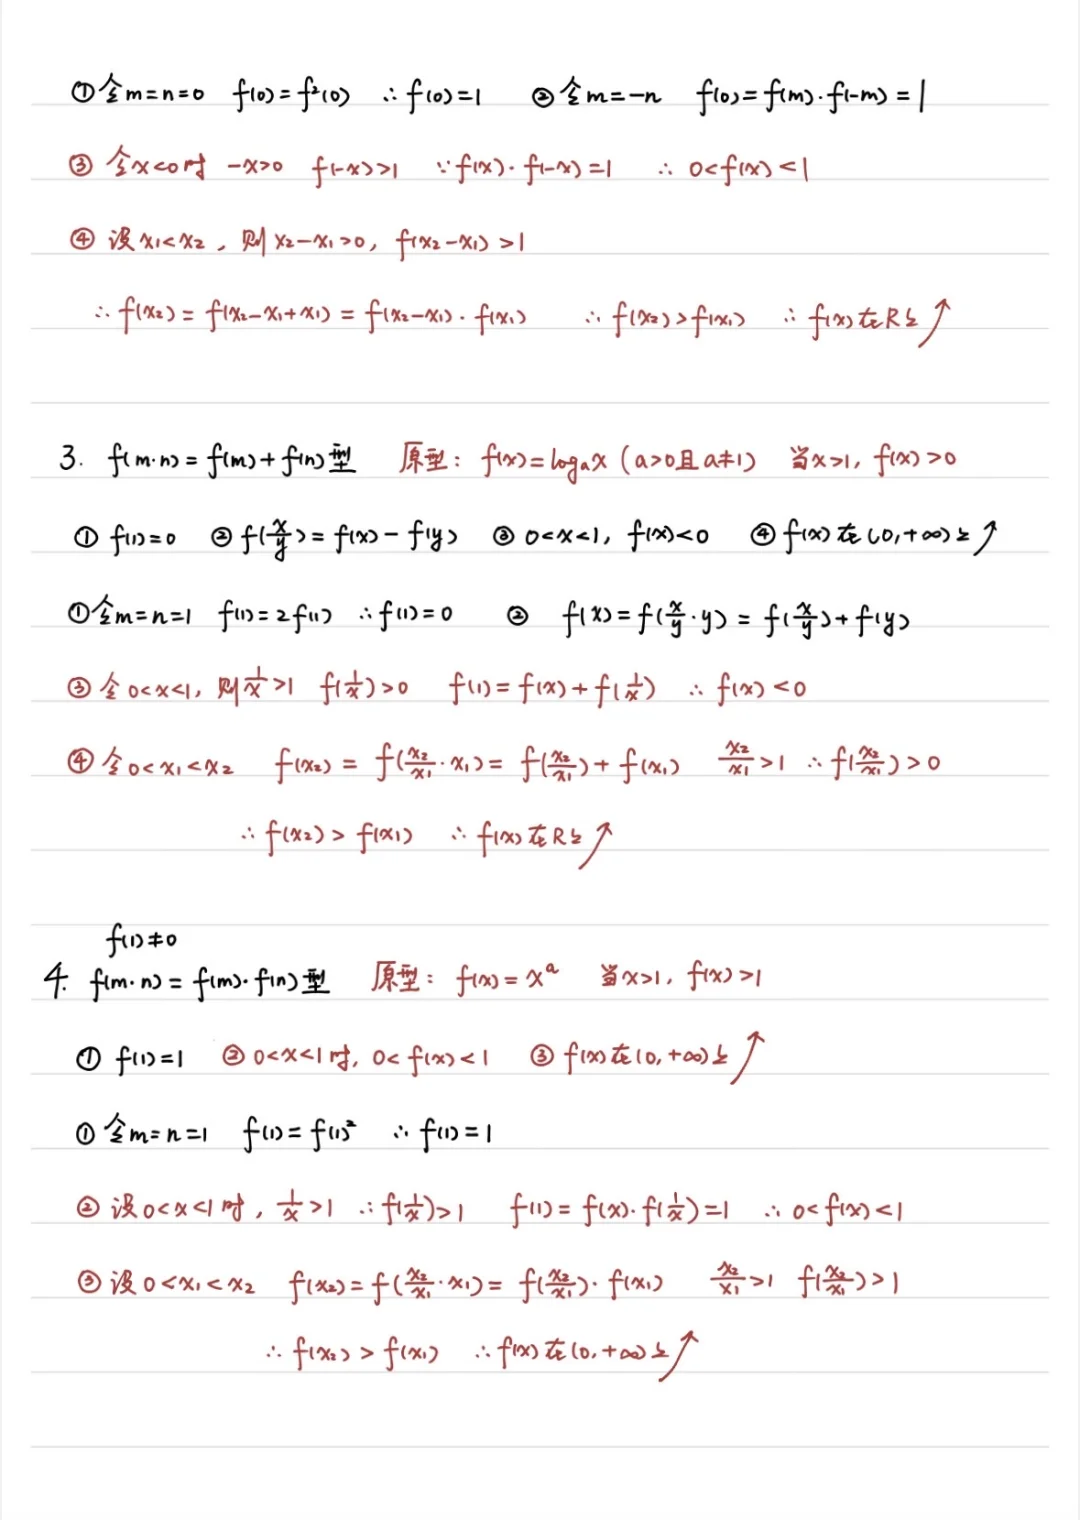 ①令m=n=0 f(0)=f²(0) ∴f(0)=1 ②令m=-n f(0)=f(m)·f(-m)=1
③令x<0时 -x>0 f(-x)>1 ∵f(x)·f(-x)=1 ∴0<f(x)<1
④设x₁<x₂，则x₂-x₁>0，f(x₂-x₁)>1
∴f(x₂)=f(x₂-x₁+x₁)=f(x₂-x₁)·f(x₁) ∴f(x₂)>f(x₁) ∴f(x)在R上↗
3. f(m·n)=f(m)+f(n)型 原型：f(x)=logₐx（a>0且a≠1） 当x>1，f(x)>0
①f(1)=0 ②f(x/y)=f(x)-f(y) ③0<x<1，f(x)<0 ④f(x)在(0,+∞)上↗
①令m=n=1 f(1)=2f(1) ∴f(1)=0 ② f(x)=f(x/y·y)=f(x/y)+f(y)
③令0<x<1，则1/x>1 f(1/x)>0 f(1)=f(x)+f(1/x) ∴f(x)<0
④令0<x₁<x₂ f(x₂)=f(x₂/x₁·x₁)=f(x₂/x₁)+f(x₁) x₂/x₁>1 ∴f(x₂/x₁)>0
∴f(x₂)>f(x₁) ∴f(x)在R上↗
f(1)≠0
4. f(m·n)=f(m)·f(n)型 原型：f(x)=xᵃ 当x>1，f(x)>1
①f(1)=1 ②0<x<1时，0<f(x)<1 ③f(x)在(0,+∞)上↗
①令m=n=1 f(1)=f(1)² ∴f(1)=1
②设0<x<1时，1/x>1 ∴f(1/x)>1 f(1)=f(x)·f(1/x)=1 ∴0<f(x)<1
③设0<x₁<x₂ f(x₂)=f(x₂/x₁·x₁)=f(x₂/x₁)·f(x₁) x₂/x₁>1 f(x₂/x₁)>1
∴f(x₂)>f(x₁) ∴f(x)在(0,+∞)上↗